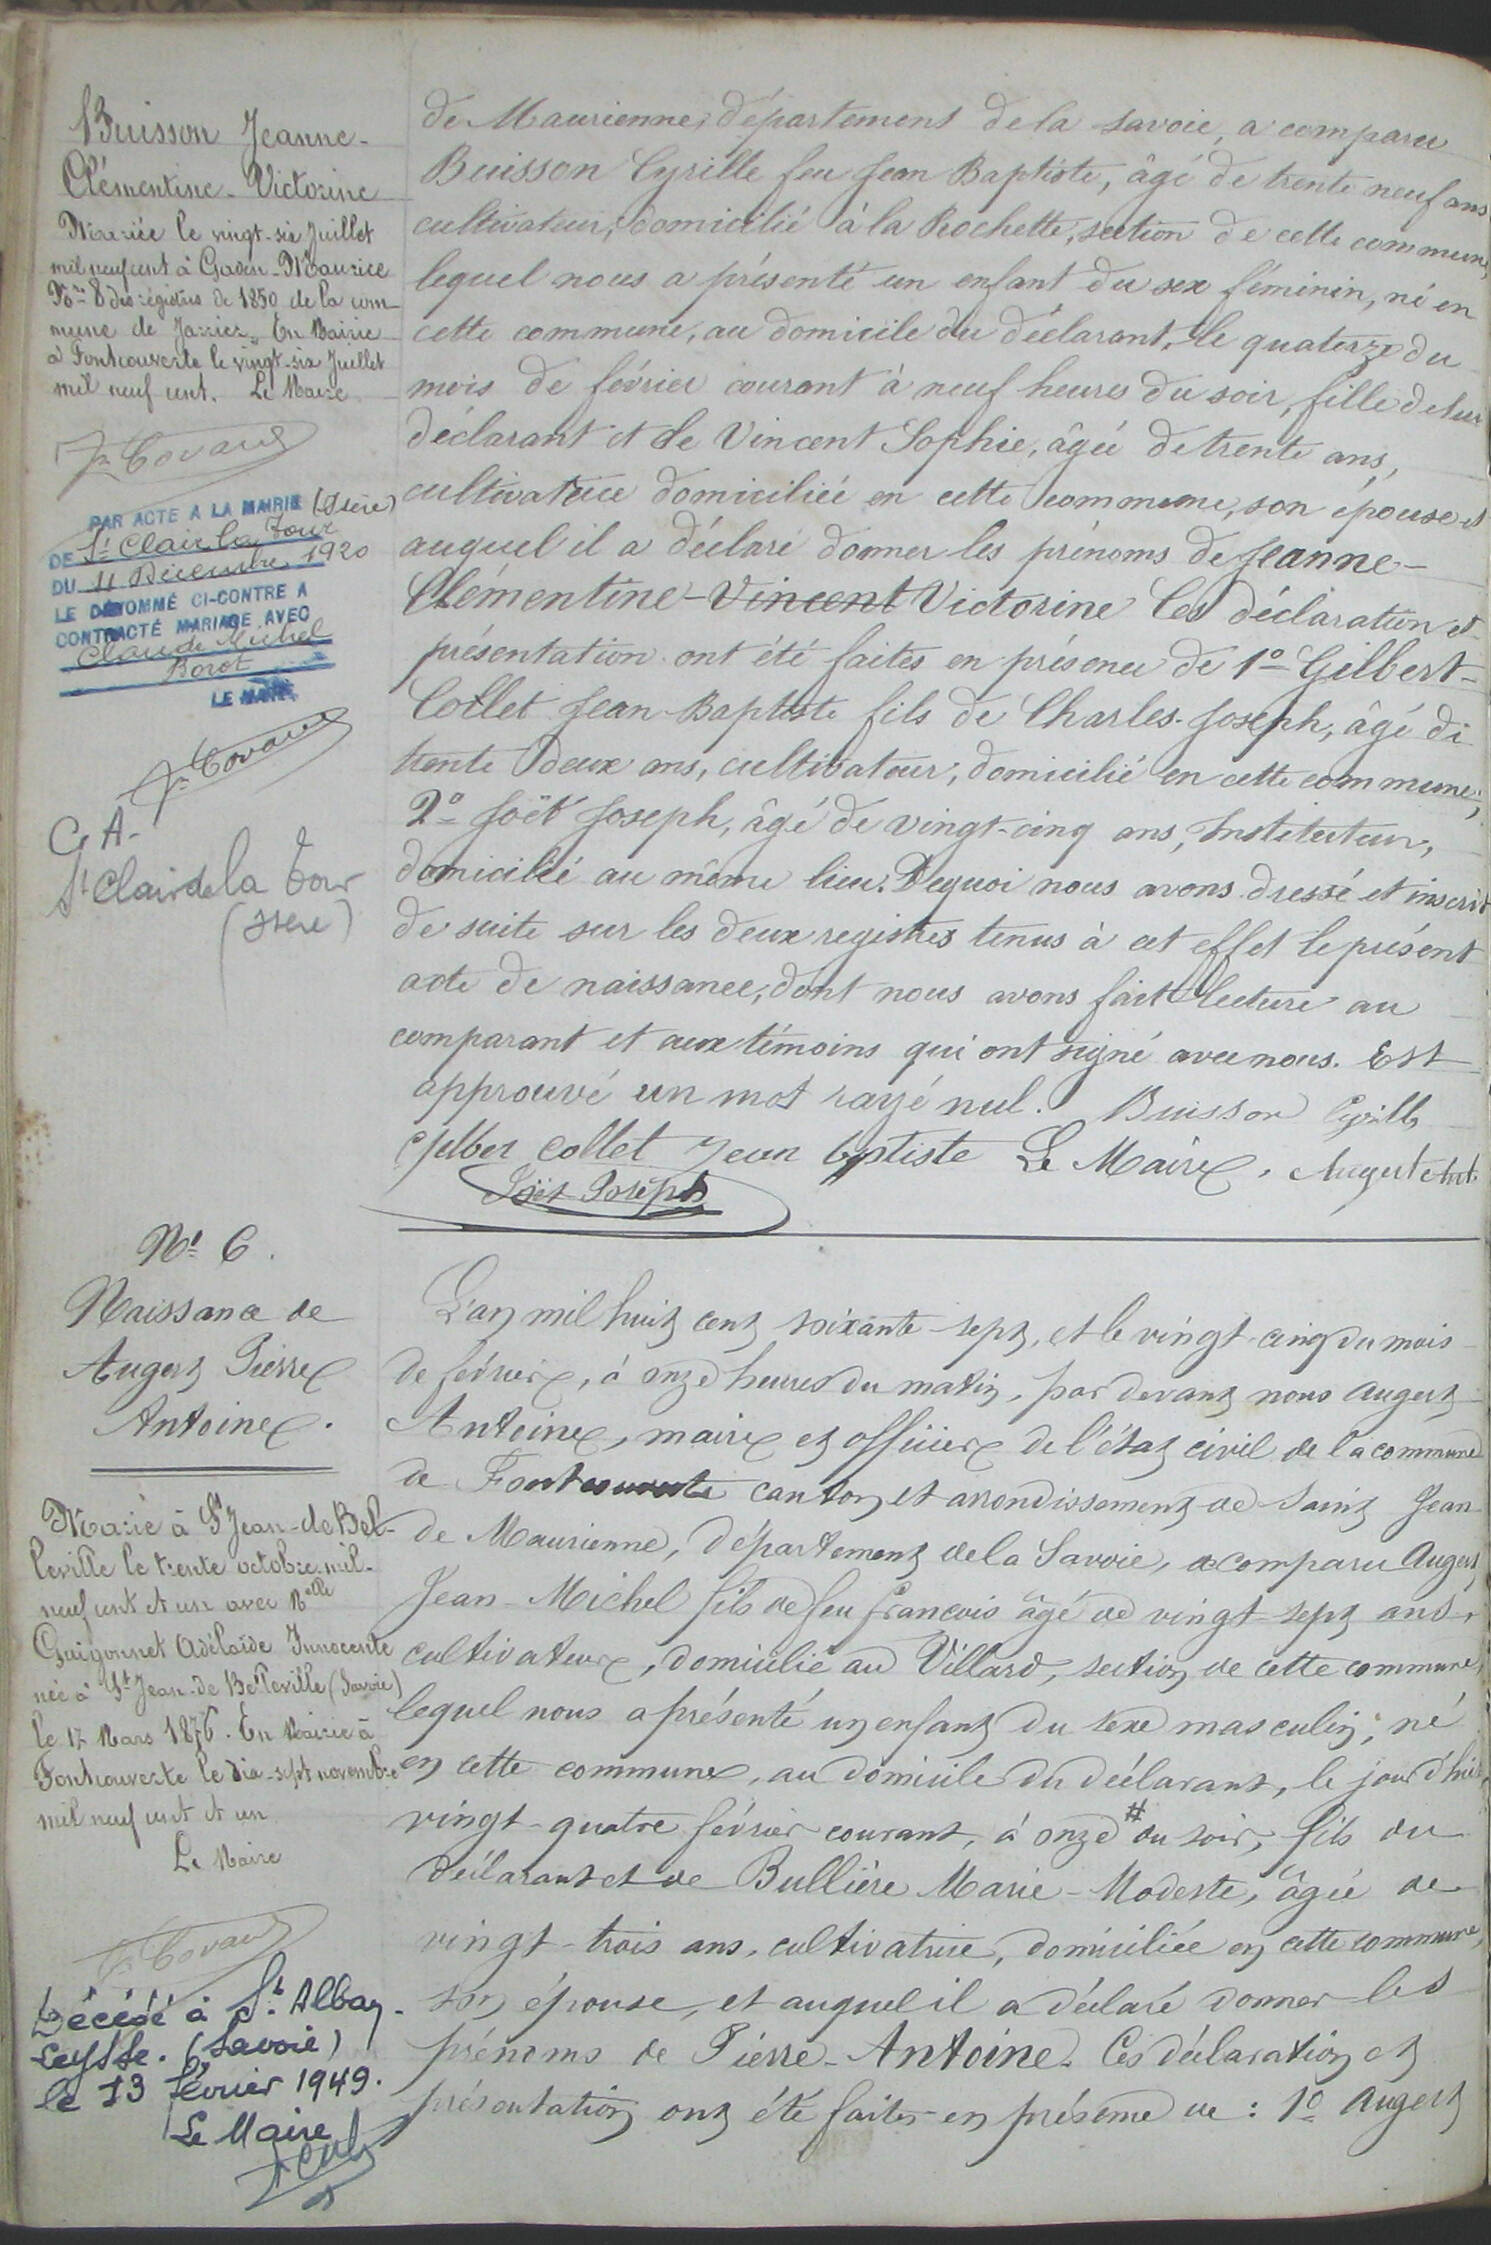 Buisson Jeanne-
Clémentine-Victorine
Mariée le vingt-six Juillet
mil neuf cent à Gaden-Maurice
Nos 8 des registres de 1850 de la com-
mune de Jarrier. En Mairie
à Fontcouverte le vingt-six Juillet
mil neuf cent. Le Maire
PAR ACTE A LA MAIRIE (Isère)
DE St Clair la Tour
DU 11 Décembre 1920
LE DÉNOMMÉ CI-CONTRE A
CONTRACTÉ MARIAGE AVEC
Claude Michel
Borot
LE MAIRE
St Clair de la Tour
(Isère)
de Maurienne, département de la Savoie, a comparu
Buisson Cyrille feu Jean Baptiste, âgé de trente neuf ans
cultivateur, domicilié à la Rochette, section de cette commune,
lequel nous a présenté un enfant du sex féminin, né en
cette commune, au domicile du déclarant, le quatorze du
mois de février courant à neuf heures du soir, fille de lui
déclarant et de Vincent Sophie, âgée de trente ans,
cultivatrice domiciliée en cette commune, son épouse et
auquel il a déclaré donner les prénoms de Jeanne-
Clémentine-Vincent Victorine Ces déclaration et
présentation ont été faites en présence de 1o Gilbert-
Collet Jean-Baptiste fils de Charles-Joseph, âgé de
trente deux ans, cultivateur, domicilié en cette commune;
2o Joët Joseph, âgé de vingt-cinq ans, Instituteur,
domicilié au même lieu. De quoi nous avons dressé et inscrit
de suite sur les deux registres tenus à cet effet le présent
acte de naissance, dont nous avons fait lecture au
comparant et aux témoins qui ont signé avec nous. Est
approuvé un mot rayé nul. Buisson Cyrille
Gilber Collet Jean Bptiste Le Maire, Augert Ant
Joët Joseph
No 6.
Naissance de
Augert Pierre
Antoine.
Marié à St Jean-de Bel-
leville le trente octobre mil-
neuf cent et un avec Melle
Guigonnet Adélaïde Innocente
née à St Jean-de Belleville (Savoie)
le 17 Mars 1876. En Mairie à
Fontcouverte le dix-sept novembre
mil neuf cent et un
Le Maire
Décédé à St. Alban-
Leysse. (Savoie)
le 13 février 1949.
Le Maire
L'an mil huit cent soixante-sept, et le vingt-cinq du mois
de février, à onze heures du matin, par devant nous Augert
Antoine, maire et officier de l'état civil de la commune
de Fontcouverte canton et arrondissement de Saint Jean
de Maurienne, département de la Savoie, a comparu Augert
Jean-Michel fils de feu Francois âgé de vingt-sept ans,
cultivateur, domicilié au Villard, section de cette commune,
lequel nous a présenté un enfant du sexe masculin, né
en cette commune, au domicile du déclarant, le jour d'hier
vingt-quatre février courant, à onze # du soir, fils du
déclarant et de Bullière Marie-Modeste, âgée de
vingt-trois ans, cultivatrice, domiciliée en cette commune,
son épouse, et auquel il a déclaré donner les
prénoms de Pierre-Antoine. Ces déclaration et
présentation ont été faites en présence de : 1o Augert